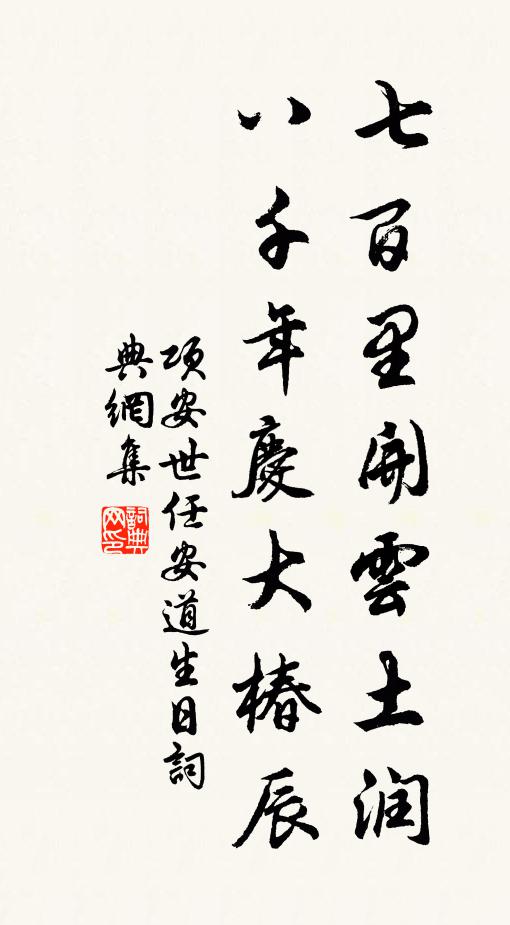 七百里開雲土润
八千年慶大椿辰
項安世任安道生日詞
典網集
詞典网印